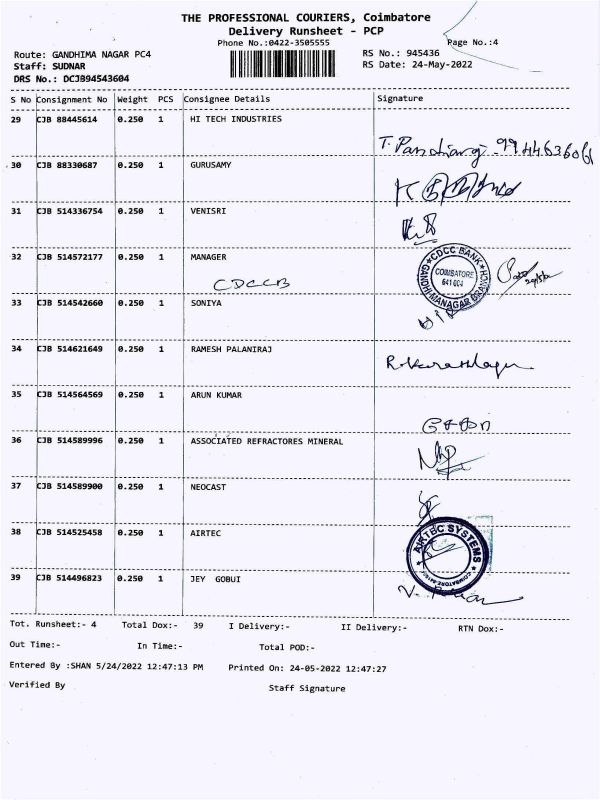 THE PROFESSIONAL COURIERS, Coimbatore
Delivery Runsheet - PCP
Phone No.:0422-3505555
Page No.:4
Route: GANDHIMA NAGAR PC4
RS No.: 945436
Staff: SUDNAR
RS Date: 24-May-2022
DRS No.: DCJB94543604
S No Consignment No Weight PCS Consignee Details Signature
29 CJB 88445614 0.250 1 HI TECH INDUSTRIES
30 CJB 88330687 0.250 1 GURUSAMY
31 CJB 514336754 0.250 1 VENISRI
32 CJB 514572177 0.250 1 MANAGER
CDCCB
CDCC BANK
COIMBATORE
641 004
GANDHI MANAGAR BRANCH
33 CJB 514542660 0.250 1 SONIYA
34 CJB 514621649 0.250 1 RAMESH PALANIRAJ
35 CJB 514564569 0.250 1 ARUN KUMAR
36 CJB 514589996 0.250 1 ASSOCIATED REFRACTORES MINERAL
37 CJB 514589900 0.250 1 NEOCAST
38 CJB 514525458 0.250 1 AIRTEC
AIRTEC SYSTEMS
39 CJB 514496823 0.250 1 JEY GOBUI
Tot. Runsheet:- 4 Total Dox:- 39 I Delivery:- II Delivery:- RTN Dox:-
Out Time:- In Time:- Total POD:-
Entered By :SHAN 5/24/2022 12:47:13 PM Printed On: 24-05-2022 12:47:27
Verified By Staff Signature